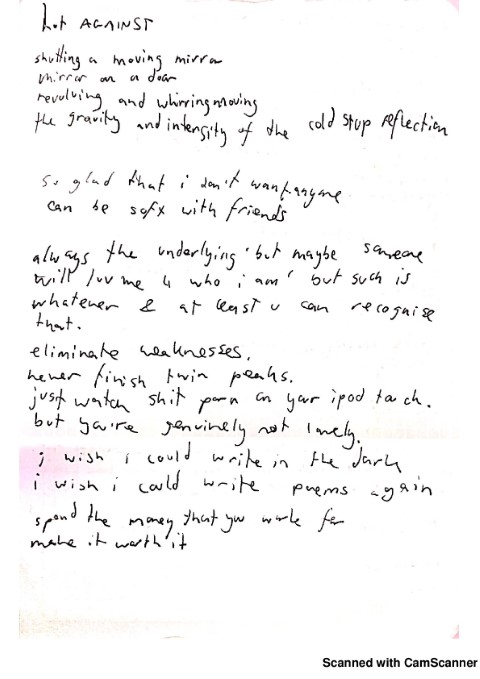 hot AGAINST
shutting a moving mirror
mirror on a door
revolving and whirring moving
the gravity and intensity of the cold stop reflection
so glad that i don't want anyone
can be soft with friends
always the underlying 'but maybe someone
will luv me 4 who i am' but such is
whatever & at least u can recognise
that.
eliminate weaknesses.
never finish twin peaks.
just watch shit porn on your ipod touch.
but you're genuinely not lonely.
i wish i could write in the dark
i wish i could write poems again
spend the money that you work for
make it worth it
Scanned with CamScanner